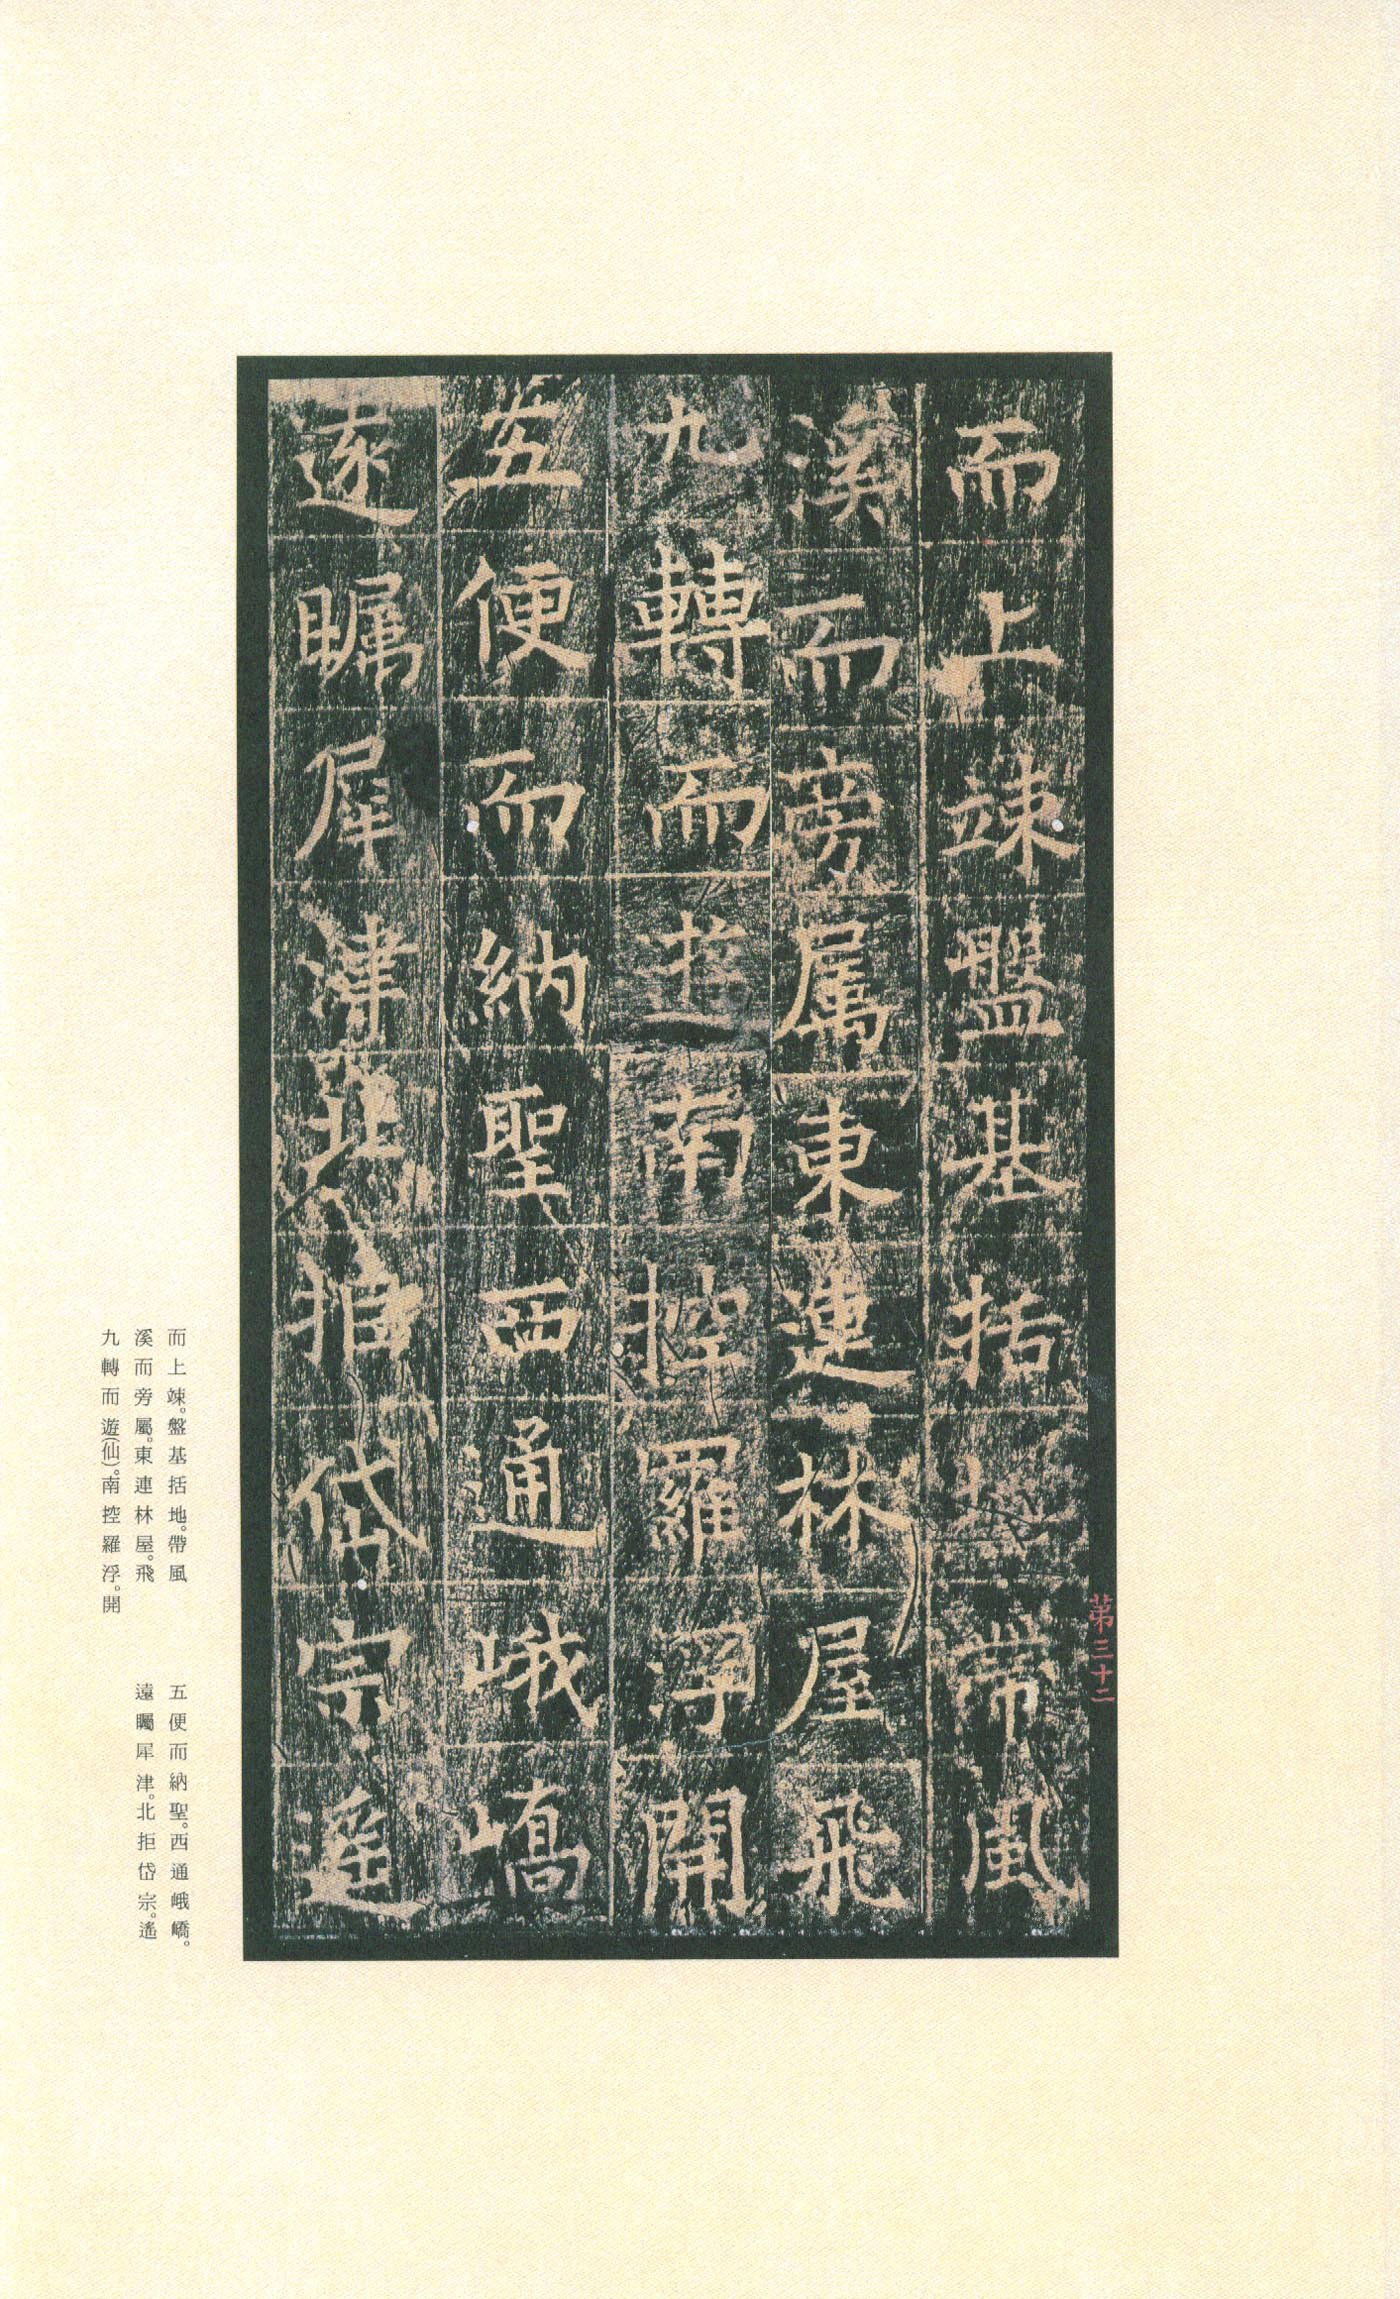 而上竦盤基括地帶風
溪而旁屬東連林屋飛
九轉而遊南控羅浮開
五便而納聖西通峨嶠
遠矚犀津北拒岱宗遙
第三十二
而上竦。盤基括地。帶風
溪而旁屬。東連林屋。飛
九轉而遊(仙)。南控羅浮。開
五便而納聖。西通峨嶠。
遠矚犀津。北拒岱宗。遙